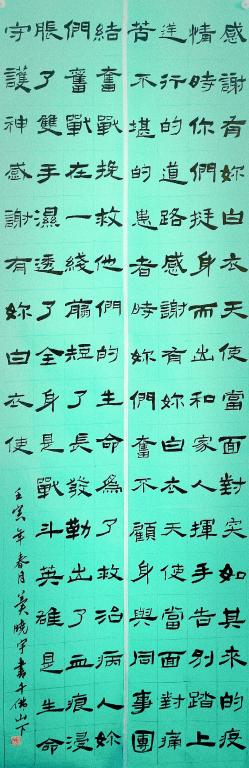 感謝有妳白衣天使當面對突如其來的疫
情時你們挺身而出和家人揮手告別踏上
逆行的道路感謝有妳白衣天使當面對痛
苦不堪的患者時妳們奮不顧身與同事團
結奮戰挽救他們的生命為了救治病人妳
們奮戰在一綫翦短了長發勒出了血痕浸
脹了雙手濕透了全身是戰斗英雄是生命
守護神感謝有妳白衣使
壬寅年春月姜曉書千佛山下